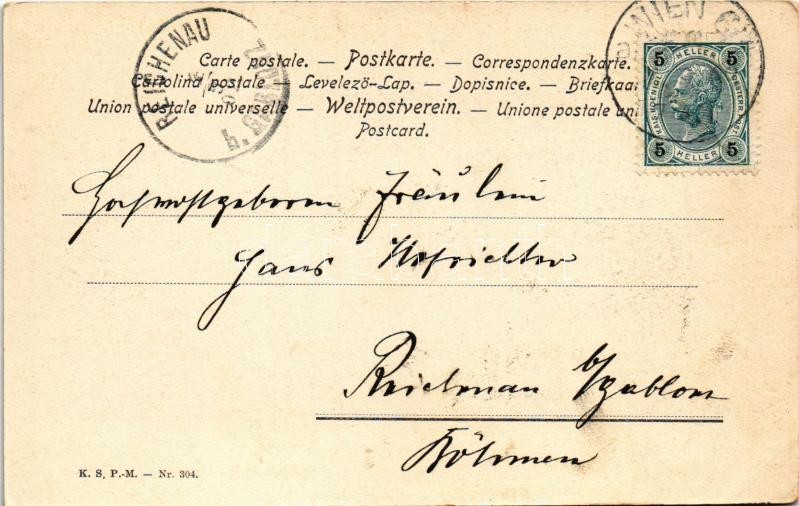 REICHENAU
b. GABLONZ
WIEN
Carte postale. — Postkarte. — Correspondenzkarte.
Cartolina postale — Levelező-Lap. — Dopisnice. — Briefkaa
Union postale universelle — Weltpostverein. — Unione postale uni
Postcard.
5 HELLER 5
KAIS. KOENIGL. OESTERR. POST.
5 HELLER 5
Hochwohlgeboren Fräulein
Hofrichter
Reichenau b/Gablonz
Böhmen
K. S, P.-M. — Nr. 304.